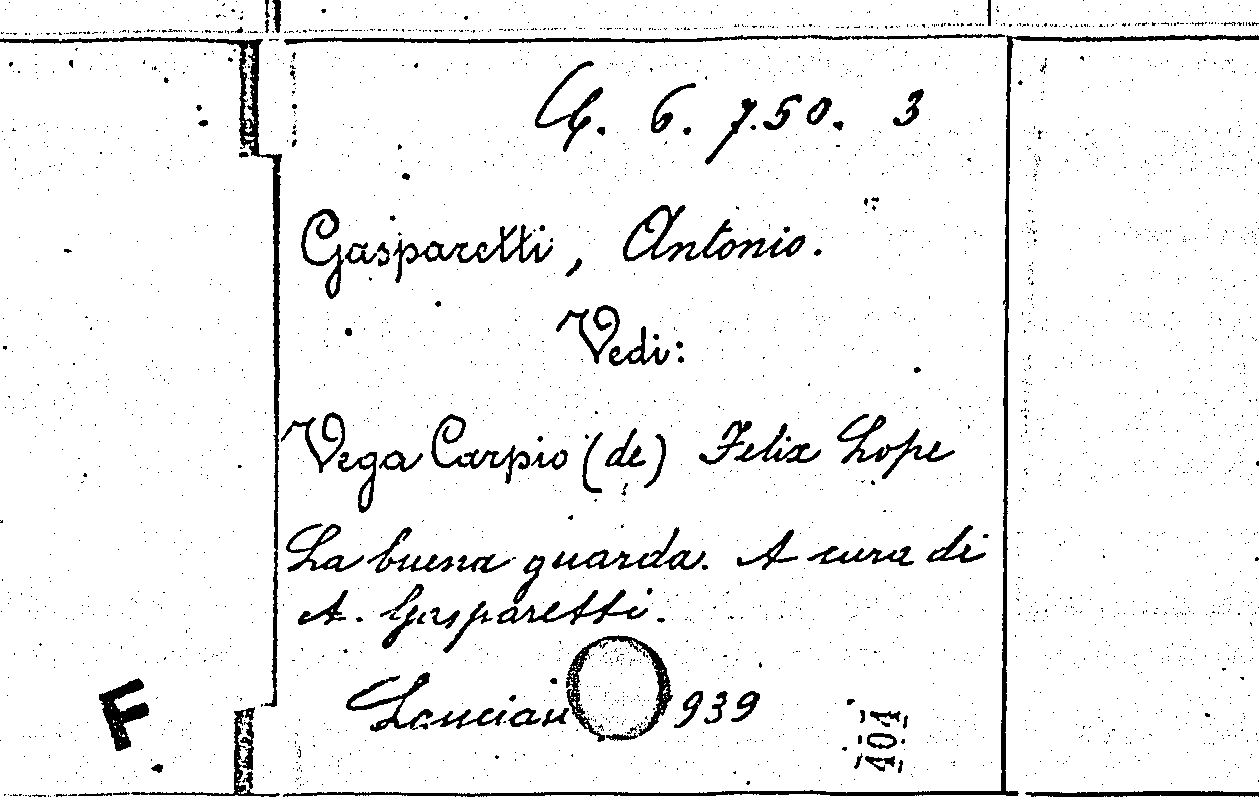 6. 7.50. 3
Gasparetti, Antonio.
Vedi:
Vega Carpio (de) Felix Lope
La buena guarda. A cura di
A. Gasparetti.
939
404
F